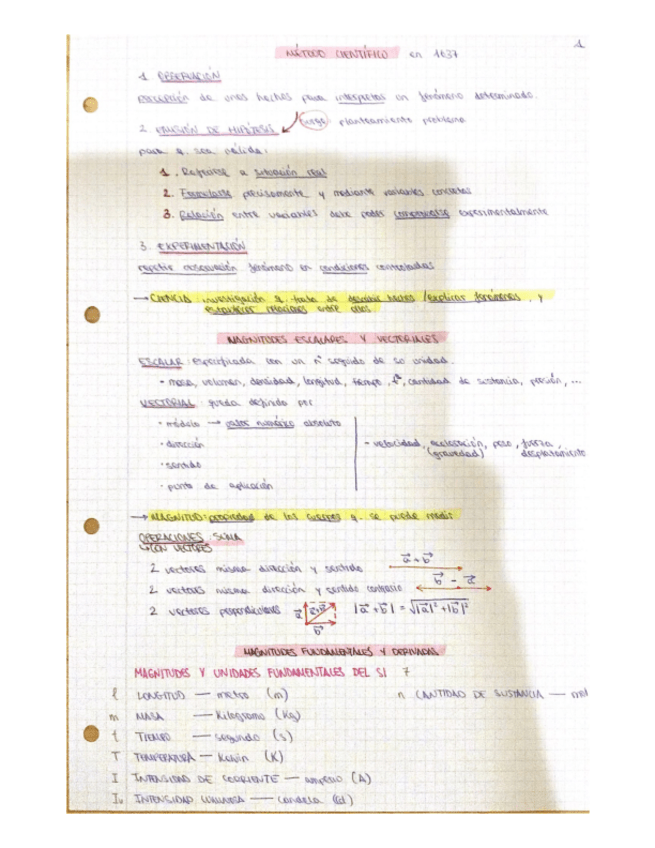 1
MÉTODO CIENTÍFICO en 1637
1. OBSERVACIÓN
Percepción de unos hechos para interpretar un fenómeno determinado.
2. EMISIÓN DE HIPÓTESIS surge planteamiento problema
para q sea válida:
1. Referirse a situación real
2. Formularse precisamente y mediante variables concretas
3. Relación entre variables debe poder comprobarse experimentalmente
3. EXPERIMENTACIÓN
repetir observación fenómeno en condiciones controladas
→ CIENCIA: investigación q trata de describir hechos / explicar fenómenos, y
establecer relaciones entre ellos
MAGNITUDES ESCALARES Y VECTORIALES
ESCALAR: especificada con un nº seguido de su unidad.
• masa, volumen, densidad, longitud, tiempo, tª, cantidad de sustancia, presión, ...
VECTORIAL: queda definido por
• módulo → valor numérico absoluto
• dirección
• sentido
• punto de aplicación
- velocidad, aceleración, peso, fuerza,
(gravedad) desplazamiento
→ MAGNITUD: propiedad de los cuerpos q. se puede medir
OPERACIONES: SUMA
↳ CON VECTORES
2 vectores misma dirección y sentido a⃗ + b⃗
2 vectores misma dirección y sentido contrario b⃗ - a⃗
2 vectores perpendiculares a⃗ a⃗+b⃗ b⃗ |a⃗ + b⃗| = √|a⃗|² + |b⃗|²
MAGNITUDES FUNDAMENTALES Y DERIVADAS
MAGNITUDES Y UNIDADES FUNDAMENTALES DEL SI 7
l LONGITUD — metro (m) n CANTIDAD DE SUSTANCIA — mol
m MASA — Kilogramo (Kg)
t TIEMPO — segundo (s)
T TEMPERATURA — Kelvin (K)
I INTENSIDAD DE CORRIENTE — amperio (A)
Iv INTENSIDAD LUMINOSA — candela (cd)